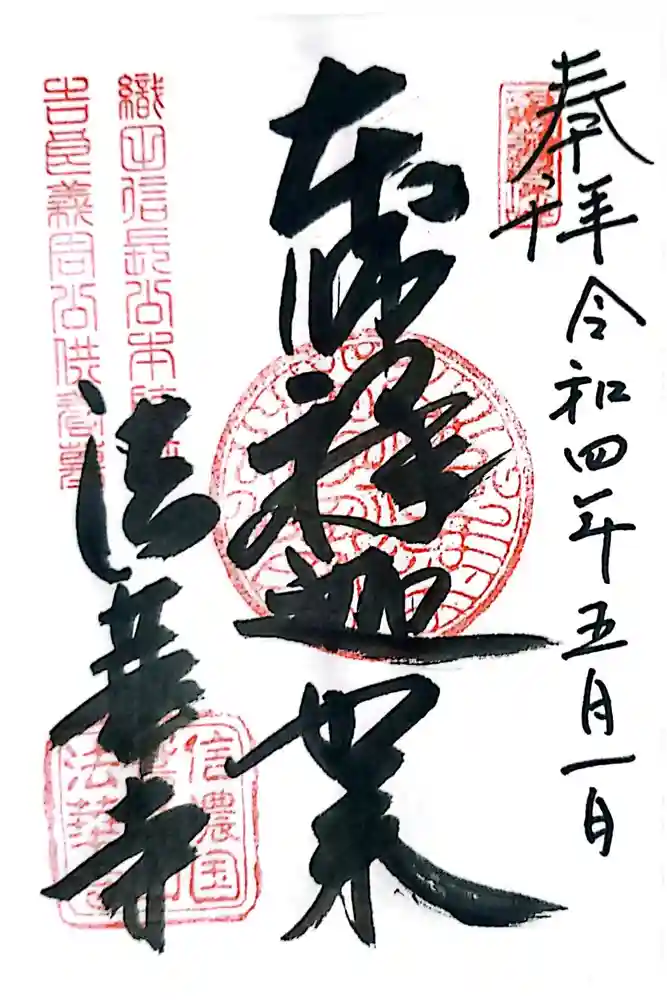 奉拝 令和四年五月一日
本師釋迦如来
織田信長公本陣
吉良義周公供養墓
法華寺
信濃国
法華寺